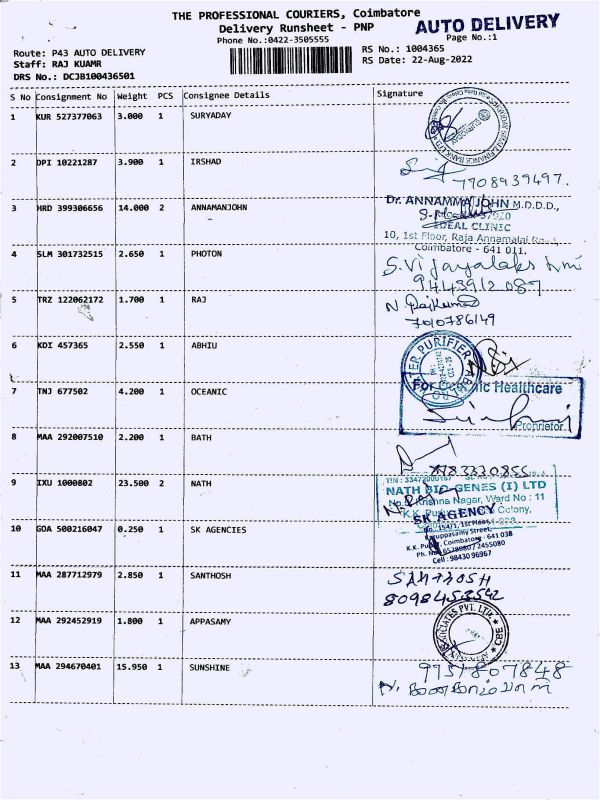 THE PROFESSIONAL COURIERS, Coimbatore
Delivery Runsheet - PNP
AUTO DELIVERY
Phone No.:0422-3505555
Page No.:1
Route: P43 AUTO DELIVERY
RS No.: 1004365
Staff: RAJ KUAMR
RS Date: 22-Aug-2022
DRS No.: DCJB100436501
S No Consignment No Weight PCS Consignee Details Signature
1 KUR 527377063 3.000 1 SURYADAY
2 DPI 10221287 3.900 1 IRSHAD
7708939497.
3 HRD 399306656 14.000 2 ANNAMANJOHN
Dr. ANNAMMA JOHN M.D.D.D.,
IDEAL CLINIC
10, 1st Floor, Raja Annamalai
Coimbatore - 641 011.
4 SLM 301732515 2.650 1 PHOTON
S. Vijayalakshmi
9443912087
5 TRZ 122062172 1.700 1 RAJ
N. Rajkumar
7010786149
6 KDI 457365 2.550 1 ABHIU
PURIFIER
7 TNJ 677502 4.200 1 OCEANIC
For Oceanic Healthcare
Proprietor
8 MAA 292007510 2.200 1 BATH
9783330855
9 IXU 1000802 23.500 2 NATH
NATH BIO-GENES (I) LTD
Krishna Nagar, Ward No : 11
Colony,
10 GOA 500216047 0.250 1 SK AGENCIES
SK AGENCY
154/1, 1st Floor,
Karuppasamy Street,
K.K. Pudur, Coimbatore - 641 038
Cell : 98430 96967
11 MAA 287712979 2.850 1 SANTHOSH
SANTHOSH
12 MAA 292452919 1.800 1 APPASAMY
ASSOCIATES PVT. LTD. CBE
13 MAA 294670401 15.950 1 SUNSHINE